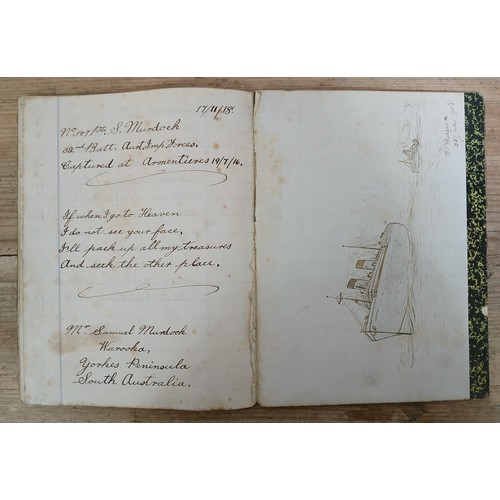 17/11/18.
No 147 Pte S. Murdock
32nd Batt. Aust. Imp. Forces.
Captured at Armentieres 19/7/16.
If when I go to Heaven
I do not see your face,
I'll pack up all my treasures
And seek the other place.
Mr. Samuel Murdock
Warooka,
Yorkes Peninsula
South Australia.